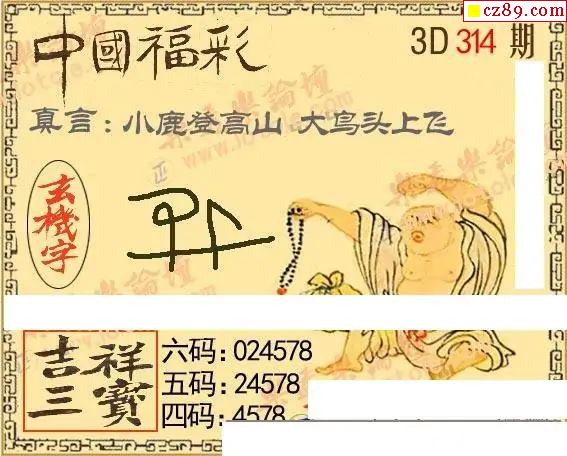 cz89.com
中國福彩
3D 314 期
真言：小鹿登高山 大鸟头上飞
玄機字
吉祥三寶
六码:024578
五码:24578
四码:4578